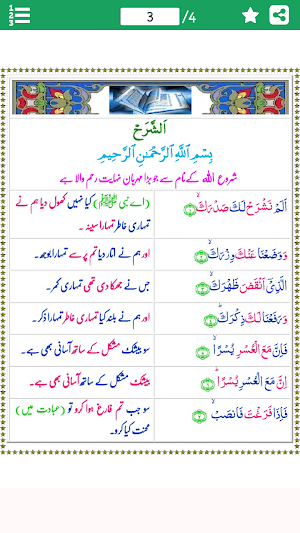 1
2
3
3 /4
اَلشَّرَحْ
بِسْمِ اللّٰهِ الرَّحْمٰنِ الرَّحِيْمِ
شروع اللّٰہ کے نام سے جو بڑا مہربان نہایت رحم والا ہے
اَلَمْ نَشْرَحْ لَكَ صَدْرَكَ ۙ﴿۱﴾
(اے نبی ﷺ) کیا نہیں کھول دیا ہم نے
تمہاری خاطر تمہارا سینہ۔
وَوَضَعْنَا عَنْكَ وِزْرَكَ ۙ﴿۲﴾
اور ہم نے اتار دیا تم پر سے تمہارا بوجھ۔
الَّذِيْۤ اَنْقَضَ ظَهْرَكَ ۙ﴿۳﴾
جس نے جھکا دی تھی تمہاری کمر۔
وَرَفَعْنَا لَكَ ذِكْرَكَ ؕ﴿۴﴾
اور ہم نے بلند کیا تمہاری خاطر تمہارا ذکر۔
فَاِنَّ مَعَ الْعُسْرِ يُسْرًا ۙ﴿۵﴾
سو بیشک مشکل کے ساتھ آسانی بھی ہے۔
اِنَّ مَعَ الْعُسْرِ يُسْرًا ؕ﴿۶﴾
بیشک مشکل کے ساتھ آسانی بھی ہے۔
فَاِذَا فَرَغْتَ فَانْصَبْ ۙ﴿۷﴾
سو جب تم فارغ ہوا کرو تو (عبادت میں)
محنت کیا کرو۔